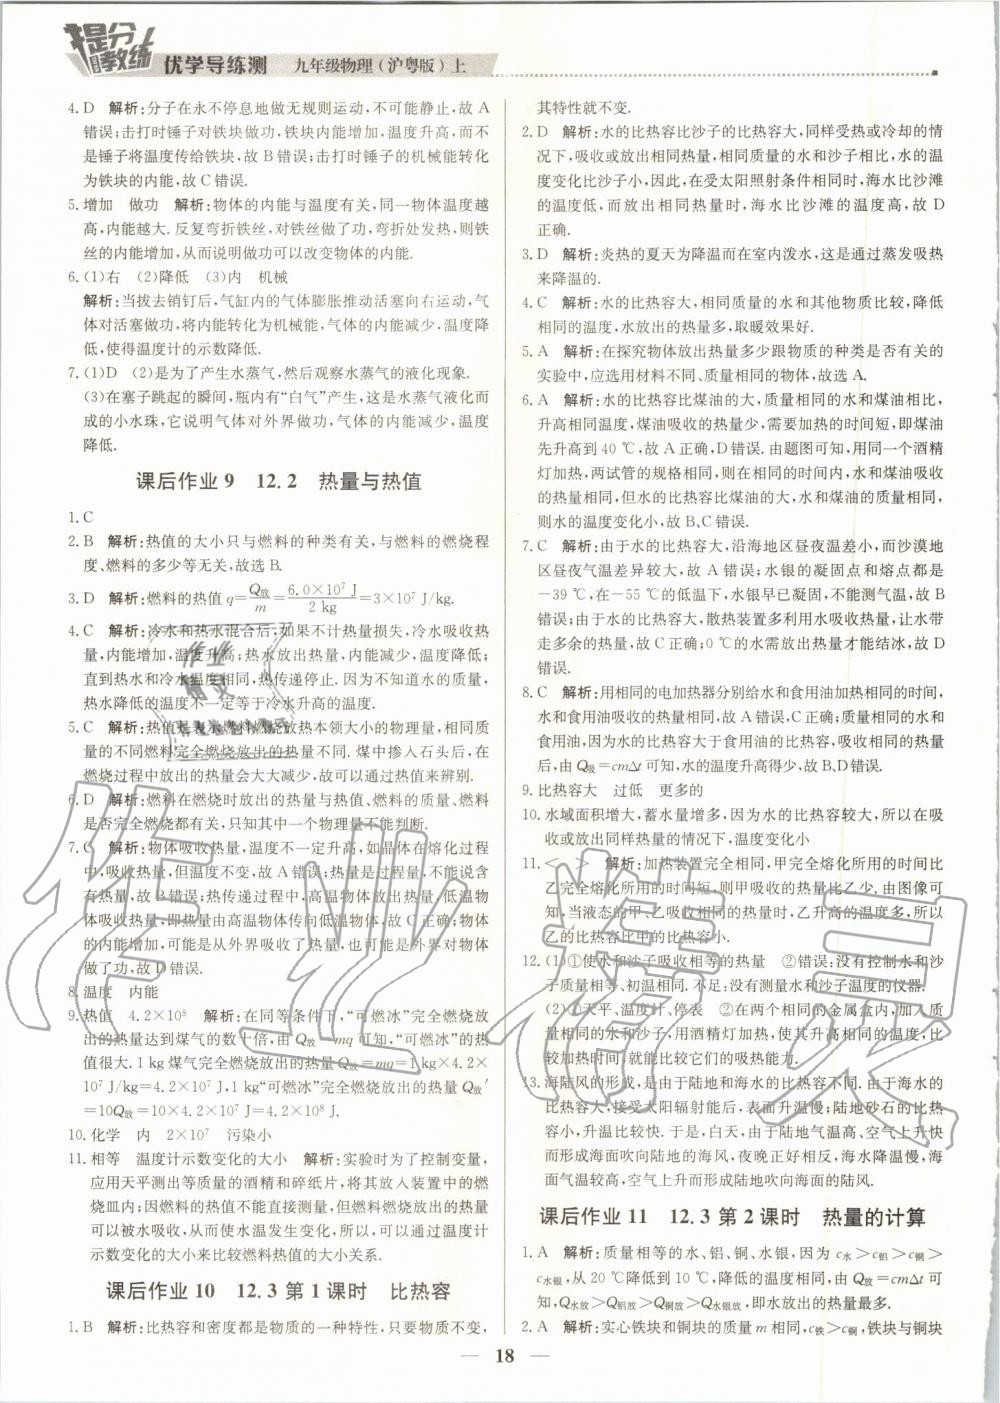 提分教练
优学导练测 九年级物理(沪粤版)上
4. D 解析:分子在永不停息地做无规则运动,不可能静止,故 A
错误;击打时锤子对铁块做功,铁块内能增加,温度升高,而不
是锤子将温度传给铁块,故 B 错误;击打时锤子的机械能转化
为铁块的内能,故 C 错误.
5. 增加 做功 解析:物体的内能与温度有关,同一物体温度越
高,内能越大. 反复弯折铁丝,对铁丝做了功,弯折处发热,则铁
丝的内能增加,从而说明做功可以改变物体的内能.
6. (1)右 (2)降低 (3)内 机械
解析:当拔去销钉后,气缸内的气体膨胀推动活塞向右运动,气
体对活塞做功,将内能转化为机械能,气体的内能减少,温度降
低,使得温度计的示数降低.
7. (1)D (2)是为了产生水蒸气,然后观察水蒸气的液化现象.
(3)在塞子跳起的瞬间,瓶内有“白气”产生,这是水蒸气液化而
成的小水珠,它说明气体对外界做功,气体的内能减少,温度
降低.
课后作业 9 12.2 热量与热值
1. C
2. B 解析:热值的大小只与燃料的种类有关,与燃料的燃烧程
度、燃料的多少等无关,故选 B.
3. D 解析:燃料的热值 q=Q放/m=6.0×10⁷ J/2 kg=3×10⁷ J/kg.
4. C 解析:冷水和热水混合后,如果不计热量损失,冷水吸收热
量,内能增加,温度升高;热水放出热量,内能减少,温度降低;
直到热水和冷水温度相同,热传递停止. 因为不知道水的质量,
热水降低的温度不一定等于冷水升高的温度.
5. C 解析:热值是表示燃料燃烧放热本领大小的物理量,相同质
量的不同燃料完全燃烧放出的热量不同. 煤中掺入石头后,在
燃烧过程中放出的热量会大大减少,故可以通过热值来辨别.
6. D 解析:燃料在燃烧时放出的热量与热值、燃料的质量、燃料
是否完全燃烧都有关,只知其中一个物理量不能判断.
7. C 解析:物体吸收热量,温度不一定升高,如晶体在熔化过程
中,吸收热量,但温度不变,故 A 错误;热量是过程量,不能说含
有热量,故 B 错误;热传递过程中,高温物体放出热量,低温物
体吸收热量,即热量由高温物体传向低温物体,故 C 正确;物体
的内能增加,可能是从外界吸收了热量,也可能是外界对物体
做了功,故 D 错误.
8. 温度 内能
9. 热值 4.2×10⁸ 解析:在同等条件下,“可燃冰”完全燃烧放
出的热量达到煤气的数十倍,由 Q放=mq 可知,“可燃冰”的热
值很大. 1 kg 煤气完全燃烧放出的热量 Q放=mq=1 kg×4.2×
10⁷ J/kg=4.2×10⁷ J,1 kg“可燃冰”完全燃烧放出的热量 Q放′
=10Q放=10×4.2×10⁷ J=4.2×10⁸ J.
10. 化学 内 2×10⁷ 污染小
11. 相等 温度计示数变化的大小 解析:实验时为了控制变量,
应用天平测出等质量的酒精和碎纸片,将其放入装置中的燃
烧皿内;因燃料的热值不能直接测量,但燃料燃烧放出的热量
可以被水吸收,从而使水温发生变化,所以,可以通过温度计
示数变化的大小来比较燃料热值的大小关系.
课后作业 10 12.3 第 1 课时 比热容
1. B 解析:比热容和密度都是物质的一种特性,只要物质不变,
其特性就不变.
2. D 解析:水的比热容比沙子的比热容大,同样受热或冷却的情
况下,吸收或放出相同热量,相同质量的水和沙子相比,水的温
度变化比沙子小,因此,在受太阳照射条件相同时,海水比沙滩
的温度低,而放出相同热量时,海水比沙滩的温度高,故 D
正确.
3. D 解析:炎热的夏天为降温而在室内泼水,这是通过蒸发吸热
来降温的.
4. C 解析:水的比热容大,相同质量的水和其他物质比较,降低
相同的温度,水放出的热量多,取暖效果好.
5. A 解析:在探究物体放出热量多少跟物质的种类是否有关的
实验中,应选用材料不同、质量相同的物体,故选 A.
6. A 解析:水的比热容比煤油的大,质量相同的水和煤油相比,
升高相同温度,煤油吸收的热量少,需要加热的时间短,即煤油
先升高到 40 ℃,故 A 正确,D 错误. 由题图可知,用同一个酒精
灯加热,两试管的规格相同,则在相同的时间内,水和煤油吸收
的热量相同,但水的比热容比煤油的大,水和煤油的质量相同,
则水的温度变化小,故 B、C 错误.
7. C 解析:由于水的比热容大,沿海地区昼夜温差小,而沙漠地
区昼夜气温差异较大,故 A 错误;水银的凝固点和熔点都是
-39 ℃,在-55 ℃的低温下,水银早已凝固,不能流入玻璃泡,故 B
错误;由于水的比热容大,散热装置多利用水吸收热量,让水带
走多余的热量,故 C 正确;0 ℃的水需放出热量才能结冰,故 D
错误.
8. C 解析:用相同的电加热器分别给水和食用油加热相同的时间,
水和食用油吸收的热量相同,故 A 错误,C 正确;质量相同的水和
食用油,因为水的比热容大于食用油的比热容,吸收相同的热量
后,由 Q吸=cmΔt 可知,水的温度升高得少,故 B、D 错误.
9. 比热容大 过低 更多的
10. 水域面积增大,蓄水量增多,因为水的比热容大,所以在吸
收或放出同样热量的情况下,温度变化小
11. < > 解析:加热装置完全相同,甲完全熔化所用的时间比
乙完全熔化所用的时间短,则甲吸收的热量比乙少. 由图像可
知,当液态的甲、乙吸收相同的热量时,乙升高的温度多,所以
乙的比热容比甲的比热容小.
12. (1)①使水和沙子吸收相等的热量 ②错误:没有控制水和沙
子质量相等、初温相同. 不足:没有测量水和沙子温度的仪器.
(2)①天平、温度计、停表 ②在两个相同的金属盒内,加入质
量相同的水和沙子,用酒精灯加热,使其升高相同的温度,比
较加热时间,就能比较它们的吸热能力.
13. 海陆风的形成,是由于陆地和海水的比热容不同. 由于海水的
比热容大,接受太阳辐射能后,表面升温慢;陆地砂石的比热
容小,升温比较快. 于是,白天,由于陆地气温高、空气上升快
而形成海面吹向陆地的海风,夜晚正好相反,海水降温慢,海
面气温较高,空气上升而形成陆地吹向海面的陆风.
课后作业 11 12.3 第 2 课时 热量的计算
1. A 解析:质量相等的水、铝、铜、水银,因为 c水>c铝>c铜>
c水银,从 20 ℃降低到 10 ℃,降低的温度相同,由 Q放=cmΔt 可
知,Q水放>Q铝放>Q铜放>Q水银放,即水放出的热量最多.
2. A 解析:实心铁块和铜块的质量 m 相同,c铁>c铜,铁块与铜块
18
作业精灵